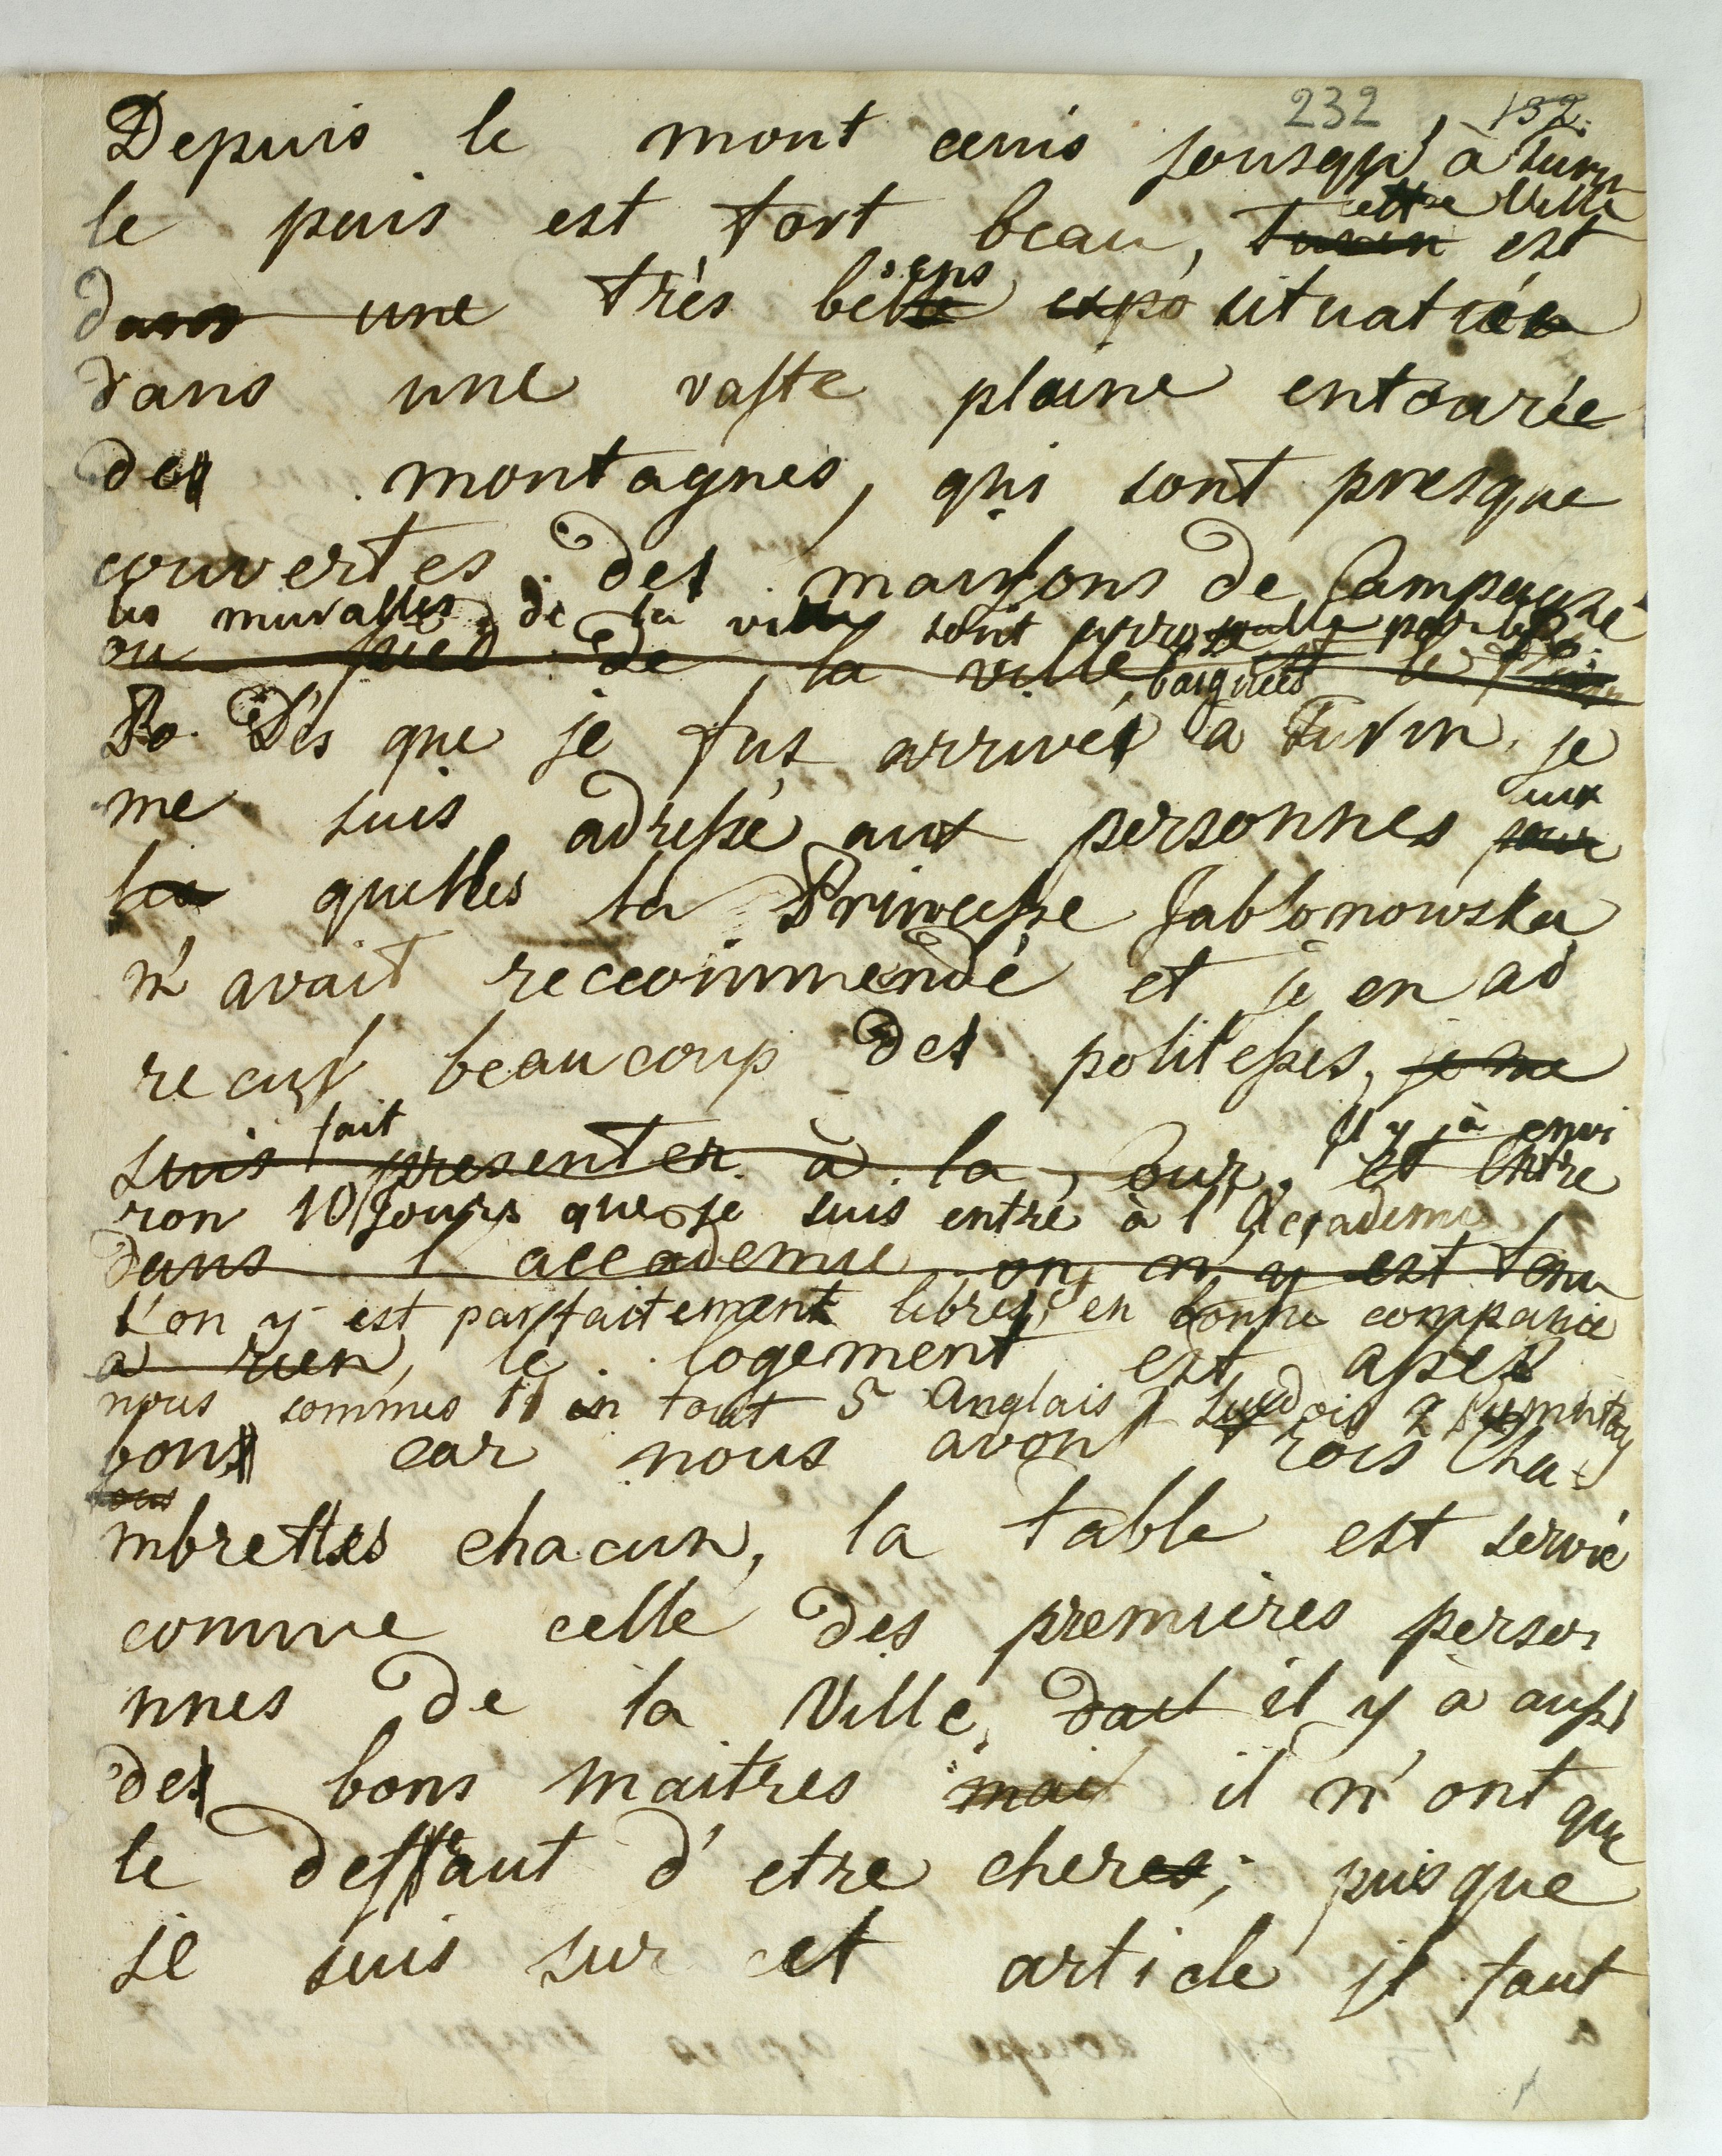 232 132.
Depuis le mont cenis jousqu' à turin
cette Ville
le pais est fort beau, turin est
iens
dans une très belle expo située
dans une vaste plaine entourée
des montagnes, qui sont presque
couvertes des maisons de Campagne
les muralles de la ville sont par le
au pied de la ville, baignées le
Po. Dès que je fus arrivé a Turin, je
aux
me suis adressé aux personnes pour
les quelles la Princesse Jablonowska
m'avait reccommendé et j'en ai
recus beaucoup des politesses, je me
fait il y à envi
suis presenter à la Cour, et entre
ron 10 Jours que je suis entré à l'Accademie
dans l'accademie on n'y est tenu
l'on y est parfaitement libre, en bonne companie
a rien, le logement est assez
nous sommes 11 in tout 5 Anglais 1 Suedois 2 Piemontois
bons car nous avons trois Cha-
mbrettes chacun, la table est servie
comme celle des premieres perso-
nnes de la Ville, il y à aussi
des bons maitres mais il n'ont que
le deffaut d'etre cheres; puisque
je suis sur cet article il faut